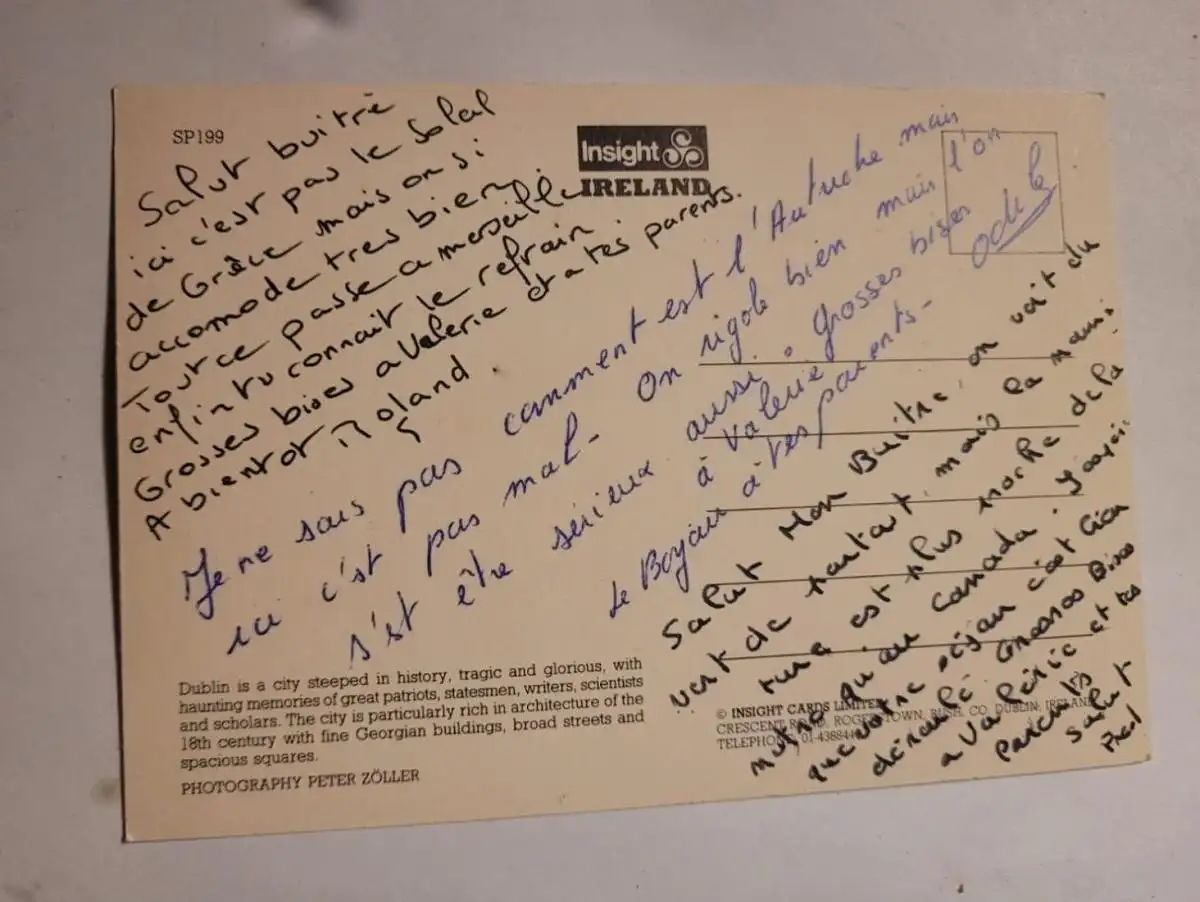 SP199
Insight
IRELAND
Salut buitre
ici c'est pas le Solal
de Grèce mais on si
accomode tres bien.
Tout ce passe a merveille
enfin tu connait le refrain
Grosses bises a Valerie et a tes parents.
A bientot Roland.
Je ne sais pas comment est l'Autriche mais
ici c'est pas mal - On rigole bien mais l'on
s'est être sérieux aussi. Grosses bises
à Valérie
à tes parents -
Odile
Le Boyau
Salut Mon Buitre, on voit du
vert de partout, mais la
est plus moche de la
qu'au Canada. J'
que votre séjour c'est bien
déroulé. Grosses Bises
a Valérie et tes
parents
Salut
Fred
Dublin is a city steeped in history, tragic and glorious, with
haunting memories of great patriots, statesmen, writers, scientists
and scholars. The city is particularly rich in architecture of the
18th century with fine Georgian buildings, broad streets and
spacious squares.
PHOTOGRAPHY PETER ZÖLLER
© INSIGHT CARDS LIMITED
CRESCENT ROAD, ROGERSTOWN, RUSH, CO. DUBLIN, IRELAND
TELEPHONE, 01-43884